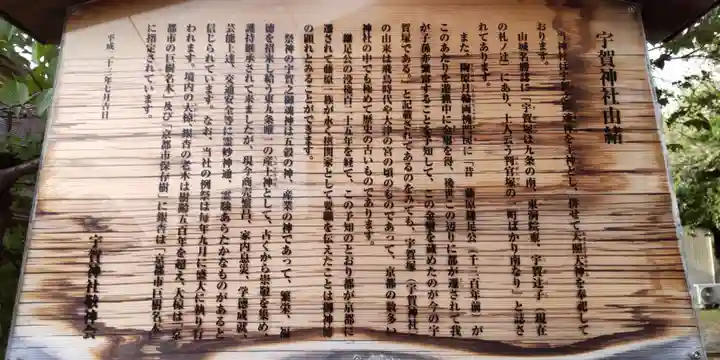 宇賀神社由緒
当神社は宇賀之御魂神を主神とし、併せて天照大神を奉斎して
おります。
山城名勝誌に「宇賀塚は九条の南、東洞院東、宇賀辻子(現在
の札ノ辻)にあり、土人云う判官塚の一町ばかり南なり」と誌さ
れてあります。
また、陶原月輪両禅閤図に「昔 藤原鎌足公(千三百年前)が
このあたりを逍遥中に金璽を得、後世この辺りに都が遷されて我
が子孫亦繁栄することを予知して、この金璽を鎮めたのが今の宇
賀塚である。」と記載されてあるのをみても、宇賀塚(宇賀神社)
の由来は飛鳥時代か大津の宮の頃のものであって、京都の数多い
神社の中でも極めて歴史の古いものであります。
鎌足公の没後百二十五年を経て、この予知のとおり都が京都に
遷されて藤原一族が永く摂関家として要職を伝えたことは御神博
の顕れとみることができます。
祭神の宇賀之御魂神は五穀の神、産業の神であって、繁栄、福
徳を招来し給う東九条庄の産土神として、古くから崇敬を集め、
護持継承されて来ましたが、現今商売繁昌、家内息災、学徳成就、
芸能上達、交通安全等に霊妙神通、霊験あらたかなものがあると
信じられています。なお、当社の例祭は毎年九月に盛大に執り行
われます。境内の大椋、銀杏の老木は樹齢五百年を超え、大椋は「京
都市の巨樹名木」及び「京都市保存樹」に銀杏は「京都市巨樹名木」
に指定されています。
平成二十二年七月吉日
宇賀神社敬神会